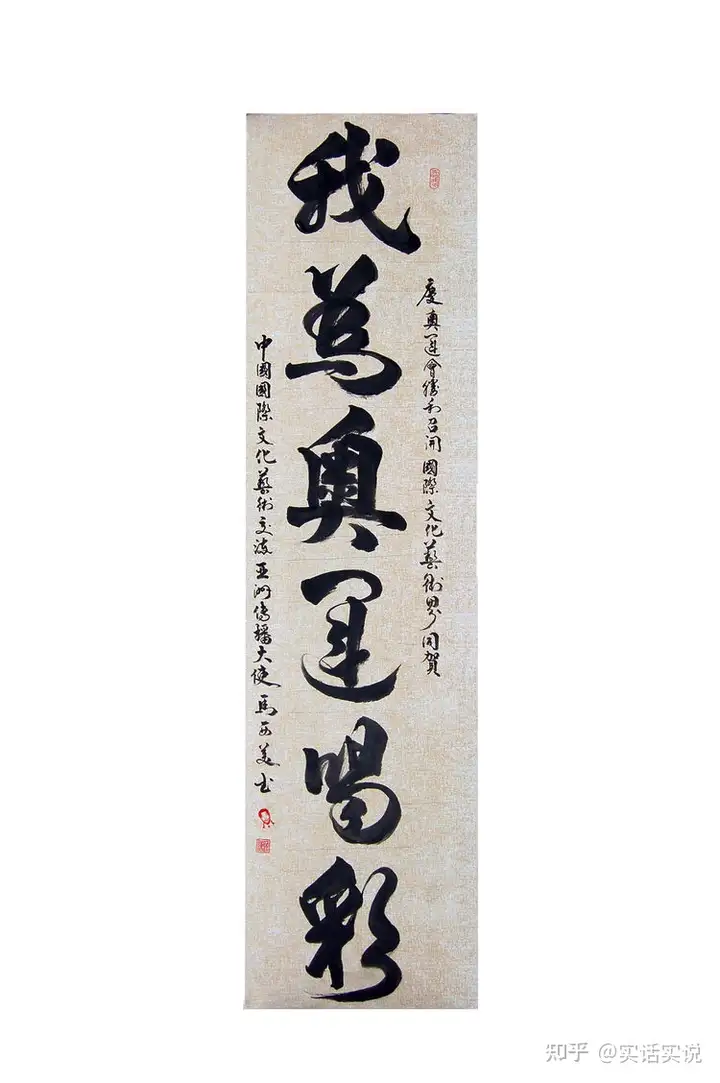 慶奧運會勝利召開 國際文化藝術界同賀
我為奧運喝彩
中國國際文化藝術交流亞洲傳播大使馬西美书
知乎 @实话实说